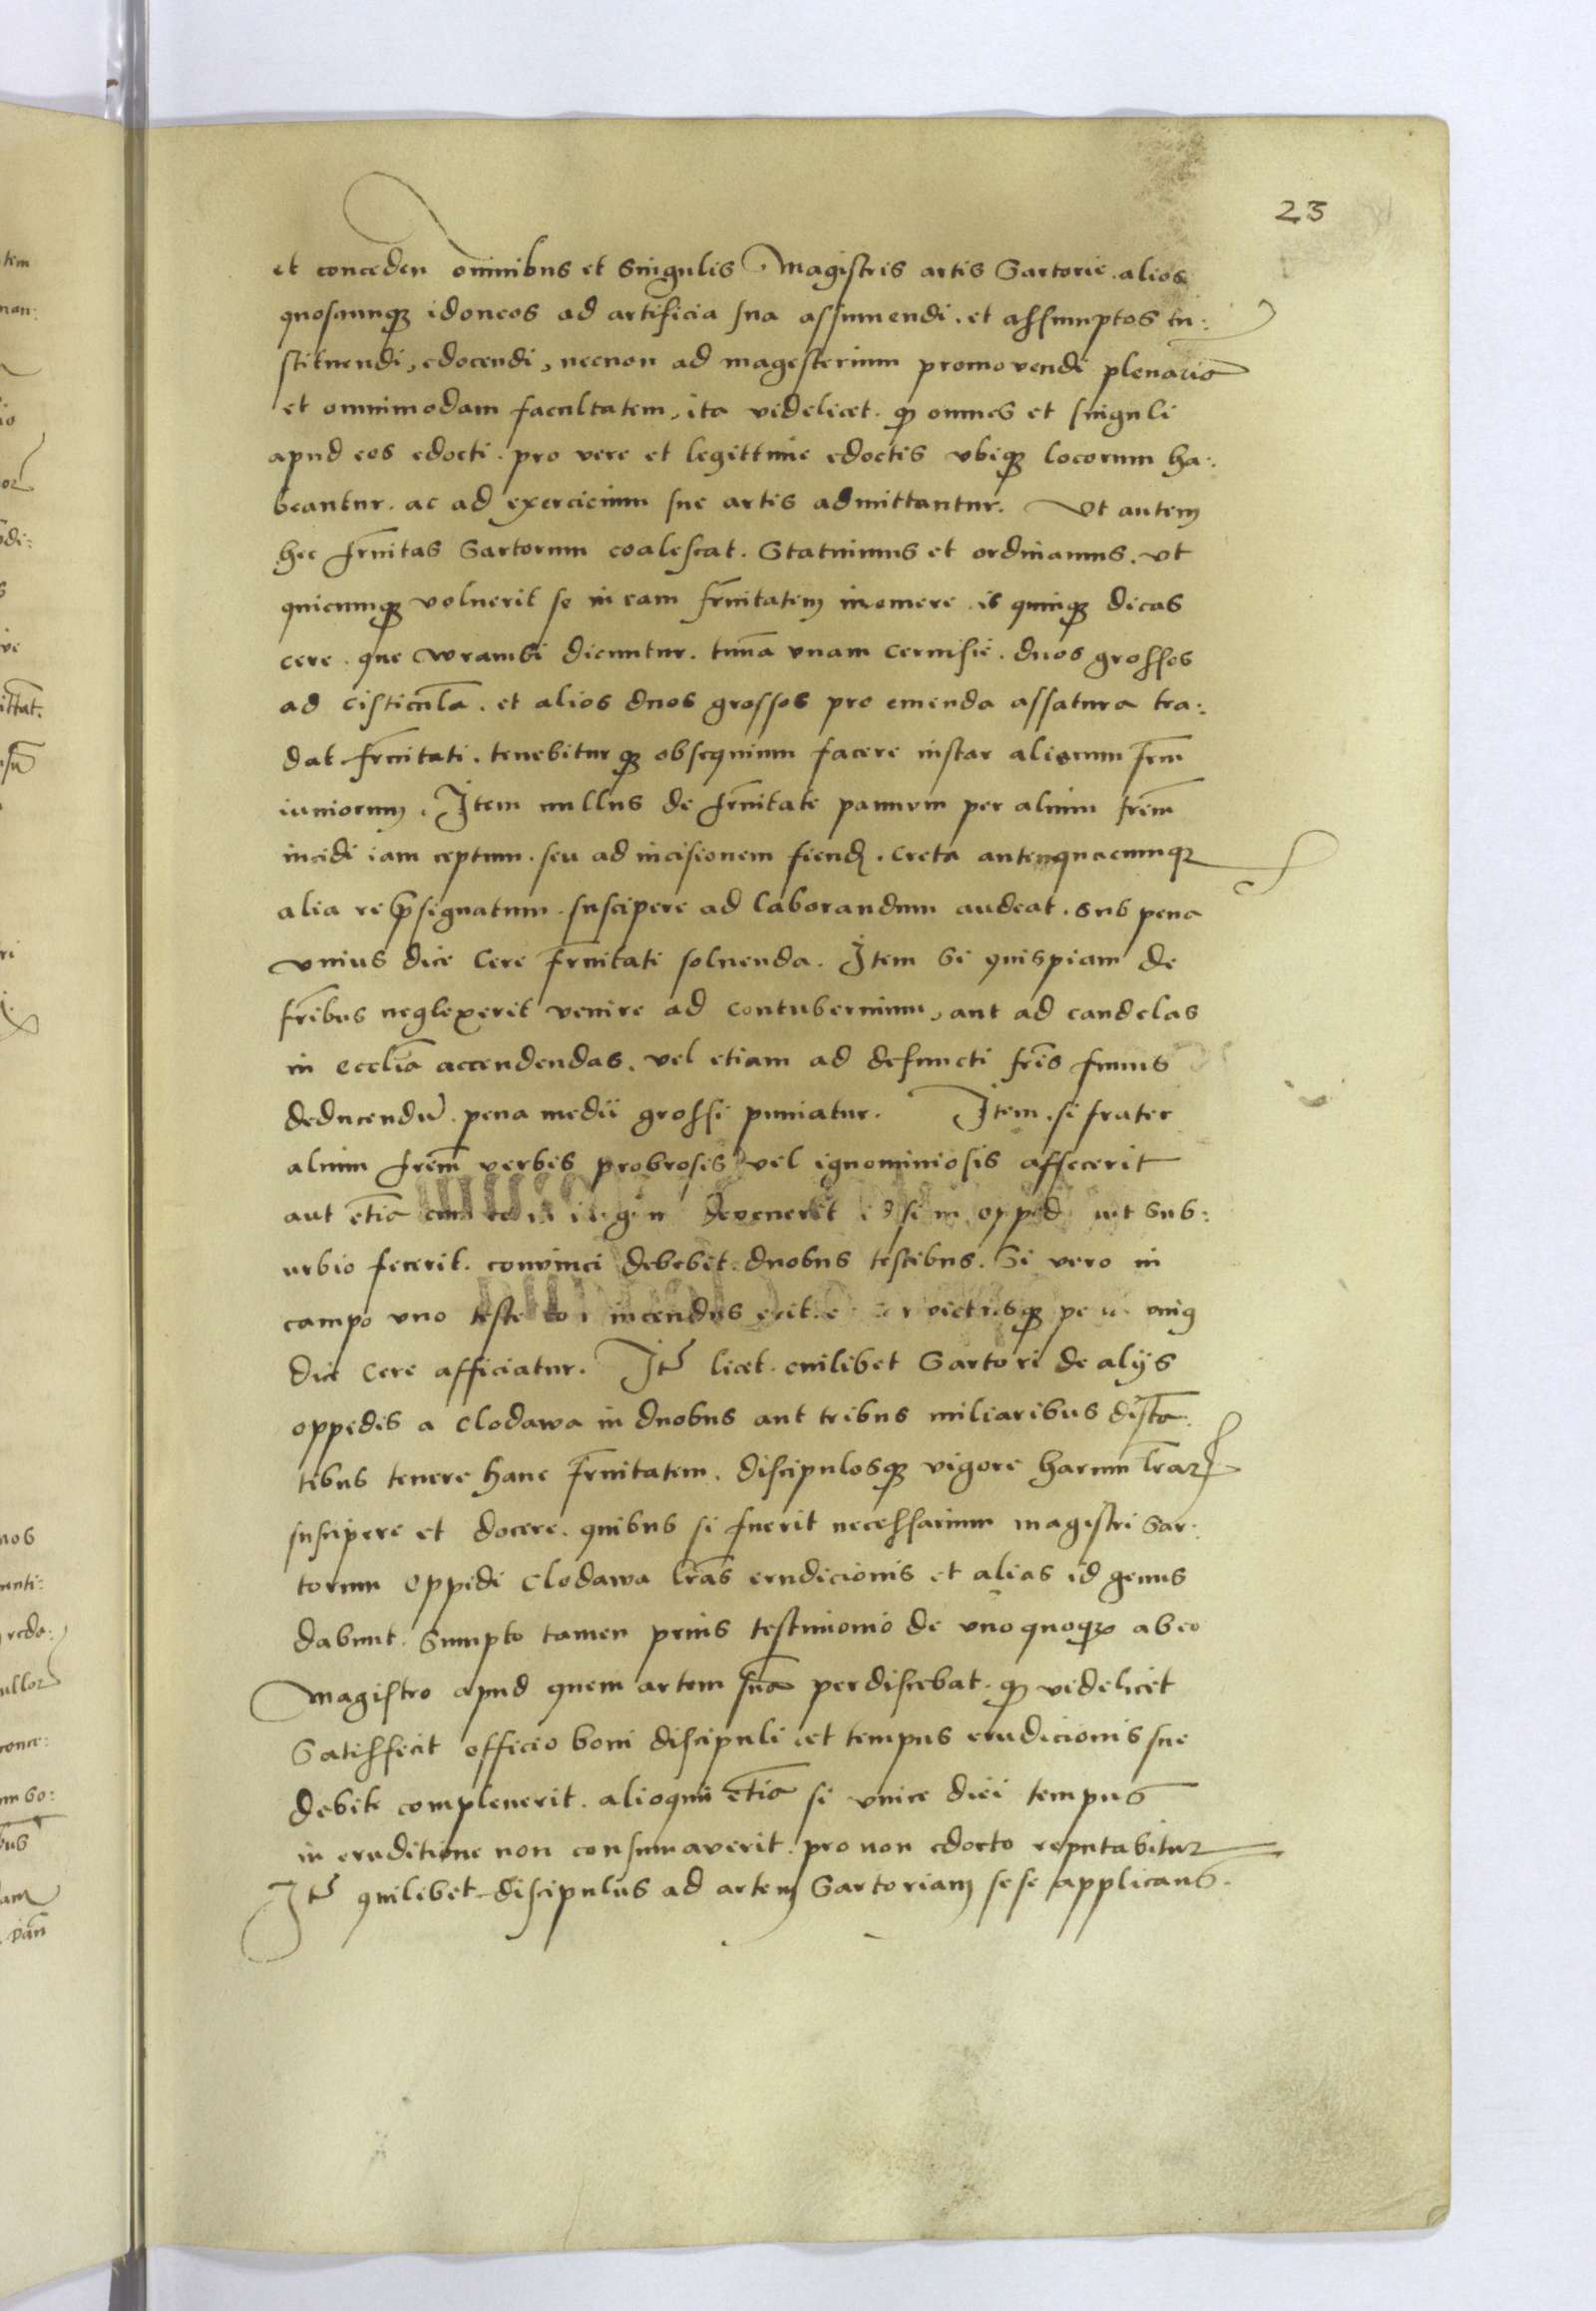 23
et conceden omnibus et singulis Magistris artis Sartorie. alios
quoscunq3 idoneos ad artificia sua assumendi. et assumptos in:
stituendi, edocendi, necnon ad magesterium promovendi plenariã
et omnimodam facultatem, ita videlicet. qͦ omnes et singuli
apud eos edocti. pro vere et legittime edoctis vbiq3 locorum ha:
beantur. ac ad exercicium sue artis admittantur. Vt autem
hec frnitas Sartorum coalescat. Statuimus et ordinamus. vt
quicumq3 voluerit se in eam frnitatem inomere. is quinq3 dicas
cere. que wrambi dicuntur. tunã vnam cervisie. duos grosses
ad cisticulã. et alios duos grossos pro emenda assatura tra:
dat frnitati. tenebiturq3 obsequium facere instar aliorum frm̃
iuniorum. Item nullus de frnitate pannum per alium frem̃
incidi iam ceptum. seu ad incisionem fiend. creta autem quacumq3
alia re p̃signatum. suscipere ad laborandum audeat. sub pena
vnius dice Cere frnitati soluenda. Item Si quispiam de
frib̃us neglexerit venire ad contubernium, aut ad candelas
in eccliã accendendas. vel etiam ad defuncti fris̃ funus
deducendũ. pena medii grossi puniatur. Item. si frater
alium frem̃ verbis probrosis vel ignominiosis affecerit
aut etiã devenerit si in opped sub:
urbio fecerit. convinci debebit. duobus testibus. Si vero in
campo vno teste incendus erit. q3 vnig
dice Cere afficiatur. It̃ licet. cuilibet Sartori de alijs
oppedis a Clodawa in duobus aut tribus miliaribus distã:
tibus tenere hanc frnitatem. discipulosq3 vigore harum lrãr
suscipere et docere. quibus si fuerit necessarium magistri Sar:
torum Oppidi Clodawa lrãs erudicionis et alias id genus
dabunt. Sumpto tamen prius testimonio de vno quoq3 ab eo
Magistro apud quem artem suã perdiscebat. qͦ videlicet
Satisfecit officio boni discipuli et tempus erudicionis sue
debite complenerit. alioquin etiã si vnice diei tempus
in eruditione non consumaverit. pro non edocto reputabitur
It̃ quilibet discipulus ad artem Sartoriam sese applicans.